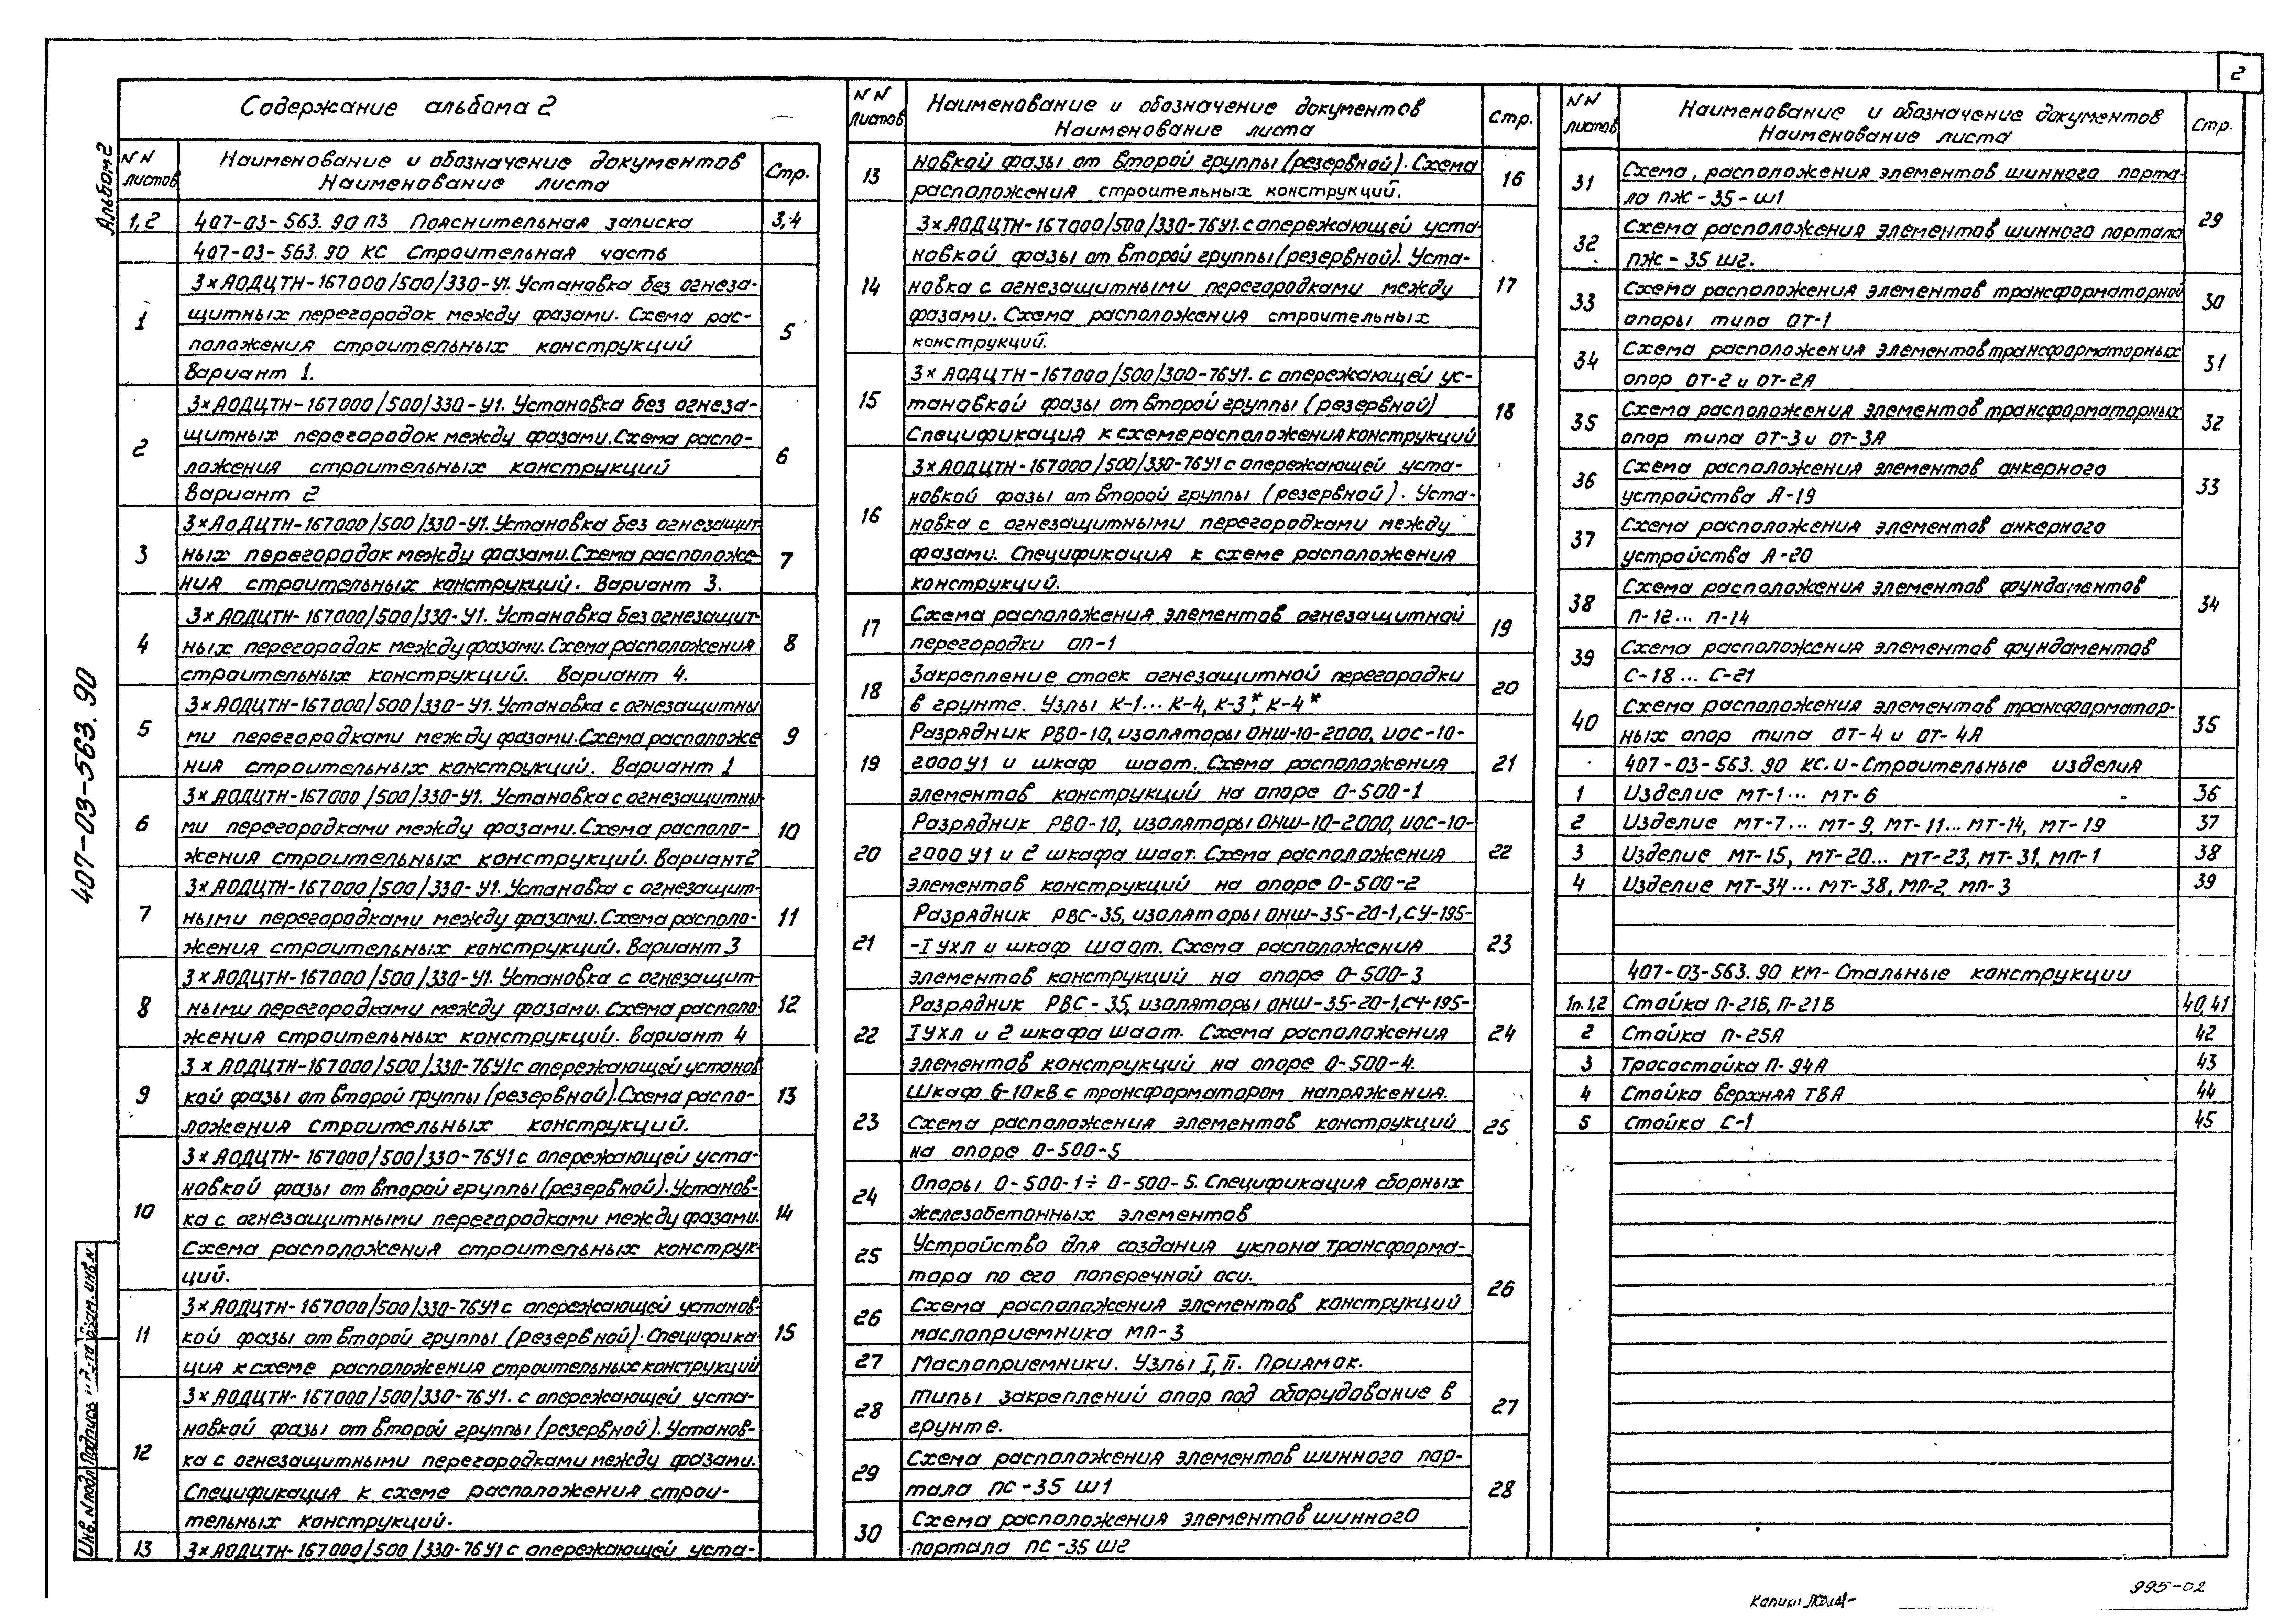 2
Альбом 2
407-03-563.90
Содержание альбома 2
NN листов
Наименование и обозначение документов
Наименование листа
Стр.
1,2 407-03-563.90 ПЗ Пояснительная записка 3,4
407-03-563.90 КС Строительная часть
3×АОДЦТН-167000/500/330-У1. Установка без огнеза-
1 щитных перегородок между фазами. Схема рас- 5
положения строительных конструкций
Вариант 1.
3×АОДЦТН-167000/500/330-У1. Установка без огнеза-
2 щитных перегородок между фазами. Схема распо- 6
ложения строительных конструкций
Вариант 2
3×АОДЦТН-167000/500/330-У1. Установка без огнезащит-
3 ных перегородок между фазами. Схема расположе- 7
ния строительных конструкций. Вариант 3.
3×АОДЦТН-167000/500/330-У1. Установка без огнезащит-
4 ных перегородок между фазами. Схема расположения 8
строительных конструкций. Вариант 4.
3×АОДЦТН-167000/500/330-У1. Установка с огнезащитны
5 ми перегородками между фазами. Схема расположе 9
ния строительных конструкций. Вариант 1
3×АОДЦТН-167000/500/330-У1. Установка с огнезащитны
6 ми перегородками между фазами. Схема располо- 10
жения строительных конструкций. Вариант 2
3×АОДЦТН-167000/500/330-У1. Установка с огнезащит-
7 ными перегородками между фазами. Схема располо- 11
жения строительных конструкций. Вариант 3
3×АОДЦТН-167000/500/330-У1. Установка с огнезащит-
8 ными перегородками между фазами. Схема располо 12
жения строительных конструкций. Вариант 4
3×АОДЦТН-167000/500/330-76У1 с опережающей установ
9 кой фазы от второй группы (резервной). Схема распо- 13
ложения строительных конструкций.
3×АОДЦТН-167000/500/330-76У1 с опережающей уста-
новкой фазы от второй группы (резервной). Установ-
10 ка с огнезащитными перегородками между фазами. 14
Схема расположения строительных конструк-
ций.
3×АОДЦТН-167000/500/330-76У1 с опережающей установ-
11 кой фазы от второй группы (резервной). Специфика- 15
ция к схеме расположения строительных конструкций
3×АОДЦТН-167000/500/330-76У1. с опережающей уста-
новкой фазы от второй группы (резервной). Установ-
12 ка с огнезащитными перегородками между фазами.
Спецификация к схеме расположения строи-
тельных конструкций.
13 3×АОДЦТН-167000/500/330-76У1 с опережающей уста-
NN листов
Наименование и обозначение документов
Наименование листа
Стр.
13 новкой фазы от второй группы (резервной). Схема 16
расположения строительных конструкций.
3×АОДЦТН-167000/500/330-76У1. с опережающей уста-
новкой фазы от второй группы (резервной). Уста-
14 новка с огнезащитными перегородками между 17
фазами. Схема расположения строительных
конструкций.
3×АОДЦТН-167000/500/300-76У1. с опережающей ус-
15 тановкой фазы от второй группы (резервной) 18
Спецификация к схеме расположения конструкций
3×АОДЦТН-167000/500/330-76У1 с опережающей уста-
новкой фазы от второй группы (резервной). Уста-
16 новка с огнезащитными перегородками между
фазами. Спецификация к схеме расположения
конструкций.
17 Схема расположения элементов огнезащитной 19
перегородки ОП-1
18 Закрепление стоек огнезащитной перегородки 20
в грунте. Узлы К-1... К-4, К-3*, К-4*
Разрядник РВО-10, изоляторы ОНШ-10-2000, ИОС-10-
19 2000У1 и шкаф шаот. Схема расположения 21
элементов конструкций на опоре О-500-1
Разрядник РВО-10, изоляторы ОНШ-10-2000, ИОС-10-
20 2000У1 и 2 шкафа шаот. Схема расположения 22
элементов конструкций на опоре О-500-2
Разрядник РВС-35, изоляторы ОНШ-35-20-1, СУ-195-
21 -I УХЛ и шкаф шаот. Схема расположения 23
элементов конструкций на опоре О-500-3
Разрядник РВС-35, изоляторы ОНШ-35-20-1, СУ-195-
22 I УХЛ и 2 шкафа шаот. Схема расположения 24
элементов конструкций на опоре О-500-4.
Шкаф 6-10кВ с трансформатором напряжения.
23 Схема расположения элементов конструкций 25
на опоре О-500-5
24 Опоры О-500-1÷О-500-5. Спецификация сборных
железобетонных элементов
25 Устройство для создания уклона трансформа-
тора по его поперечной оси. 26
26 Схема расположения элементов конструкций
маслоприемника МП-3
27 Маслоприемники. Узлы I, II. Приямок.
28 Типы закреплений опор под оборудование в 27
грунте.
29 Схема расположения элементов шинного пор-
тала ПС-35 Ш1 28
30 Схема расположения элементов шинного
портала ПС-35 Ш2
NN листов
Наименование и обозначение документов
Наименование листа
Стр.
31 Схема, расположения элементов шинного порта-
ла ПЖ-35-Ш1 29
32 Схема расположения элементов шинного портала
ПЖ-35 Ш2.
33 Схема расположения элементов трансформаторной 30
опоры типа ОТ-1
34 Схема расположения элементов трансформаторных 31
опор ОТ-2 и ОТ-2А
35 Схема расположения элементов трансформаторных 32
опор типа ОТ-3 и ОТ-3А
36 Схема расположения элементов анкерного 33
устройства А-19
37 Схема расположения элементов анкерного
устройства А-20
38 Схема расположения элементов фундаментов 34
П-12... П-14
39 Схема расположения элементов фундаментов
С-18... С-21
40 Схема расположения элементов трансформатор- 35
ных опор типа ОТ-4 и ОТ-4А
407-03-563.90 КС.И-Строительные изделия
1 Изделие МТ-1... МТ-6 36
2 Изделие МТ-7... МТ-9, МТ-11... МТ-14, МТ-19 37
3 Изделие МТ-15, МТ-20... МТ-23, МТ-31, МП-1 38
4 Изделие МТ-34... МТ-38, МП-2, МП-3 39
407-03-563.90 КМ-Стальные конструкции
1л.1,2 Стойка П-21Б, П-21В 40,41
2 Стойка П-25А 42
3 Тросостойка П-94А 43
4 Стойка верхняя ТВА 44
5 Стойка С-1 45
Инв.N подл. Подпись Взам. инв.N
995-02